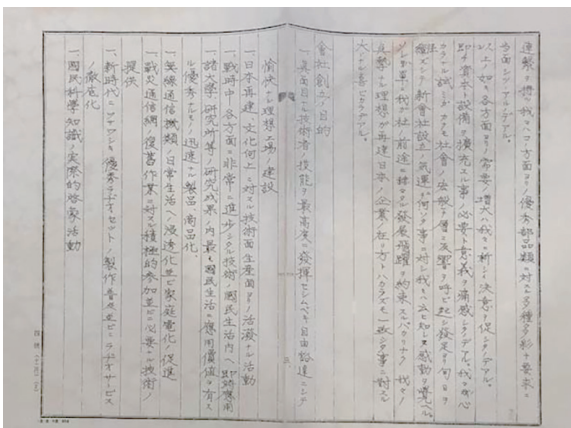 連繋ヲ得テ我々ヘコノ方面ヨリノ優秀部品類ニ対スル多種多彩ナ要求ニ
当面シツツアルノデアル。
以上ノ如キ各方面ヨリノ需要ノ増大ハ我々ニ新シイ決意ヲ促シタノデアル。
即チ資本ト設備ヲ拡充スル事ノ必要ト意義ヲ痛感シタノデアル。我々ノ心
カラナル試ミガカクモ社会ノ広般ナ層ニ反響ヲ呼ビ起シ発足ヨリ旬日ヲ
経ズシテ新会社設立ノ気運ニ向ツタ事ニ対シ我々ハ云ヒ知レヌ感動ヲ覚ヘル。
ソレハ単ニ我ガ社ノ前途ニ輝カシイ発展飛躍ヲ約束スルバカリデナク我々ノ
真摯ナル理想ガ再建日本ノ企業ノ在リ方トハカラズモ一致シタ事ニ対スル
大イナル喜ビカラデアル。
会社創立ノ目的
一、真面目ナル技術者ノ技能ヲ最高度ニ発揮セシムベキ自由豁達ニシテ
愉快ナル理想工場ノ建設
一、日本再建、文化向上ニ対スル技術面生産面ヨリノ活潑ナル活動
一、戦時中、各方面ニ非常ニ進歩シタル技術ノ國民生活内ヘノ即時應用
一、諸大学、研究所等ノ研究成果ノ内最モ國民生活ニ應用価値ヲ有ス
ル優秀ナルモノノ迅速ナル製品、商品化。
一、無線通信機類ノ日常生活ヘノ浸透化並ビニ家庭電化ノ促進
一、戦災通信網ノ復旧作業ニ対スル積極的参加並ビニ必要ナル技術ノ
提供
一、新時代ニフサワシキ優秀ラヂオセットノ製作普及並ビニラヂオサービス
ノ徹底化
一、國民科学知識ノ実際的啓蒙活動